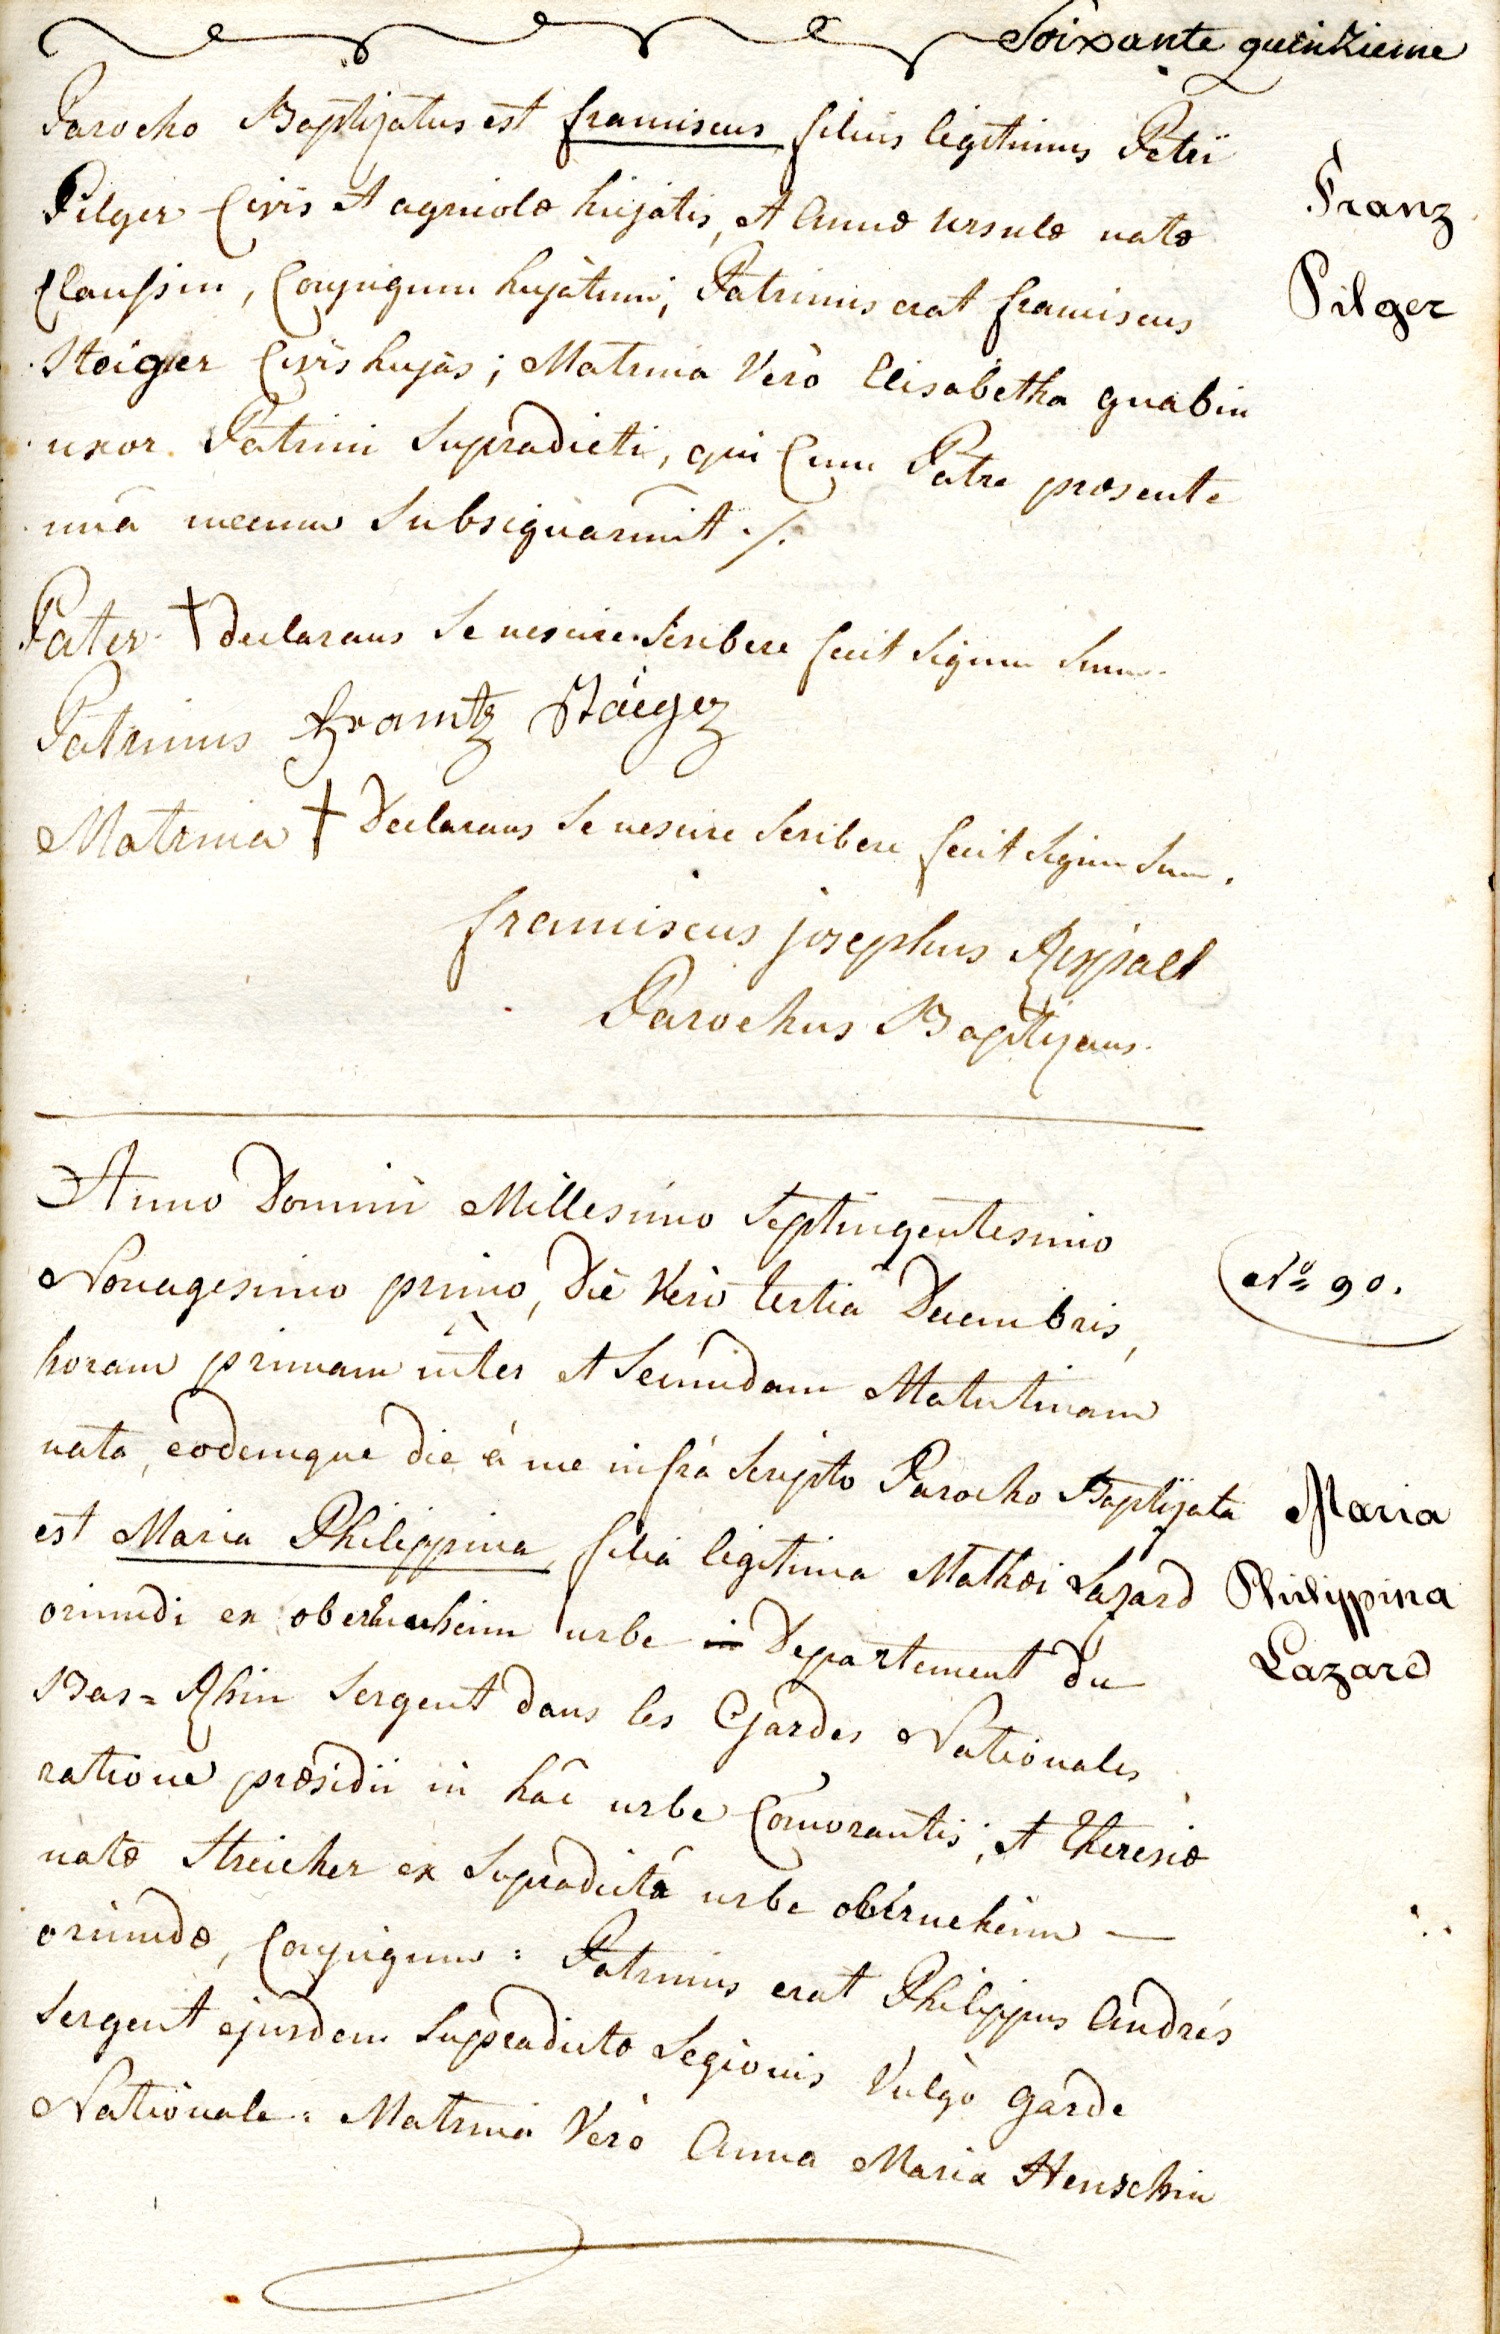 Soixante quinzieme
Parocho Baptizatus est franciscus filius legitimus Petri
Pilger Civis et agricolæ hujatis, et Annæ Ursulæ natæ
Claussin, Conjugum hujatum; Patrinus erat franciscus
Steiger Civis hujas; Matrina Verò Elisabetha gnabin
uxor Patrini Supradicti, qui Cum Patre præsente
unà mecum Subsignarunt ./.
Franz
Pilger
Pater † declarans Se nescire Scribere fecit Signum Suum.
Patrinus Frantz Stäiger
Matrina † Declarans Se nescire Scribere fecit Signum Suum.
franciscus josephus
Parochus Baptizans.
Anno Domini Millesimo Septingentesimo
Nonagesimo primo, Die Verò tertiâ Decembris,
horam primam inter et Secundam Matutinam
nata, eodemque die à me infrà Scripto Parocho Baptizata
est Maria Philippina, filia legitima Mathæi Lazard
oriundi ex obernheim urbe Departement du
Bas=Rhin Sergent dans les Gardes Nationales
ratione præsidii in hac urbe Comorantis; et Theresiæ
natæ Streicher ex Supradictâ urbe obernheim —
oriundæ, Conjugum: Patrinus erat Philippus Andrés
Sergent ejusdem Supradictæ Legionis Vulgò garde
Nationale: Matrina Verò Anna Maria Henschin
No 90.
Maria
Philippina
Lazard